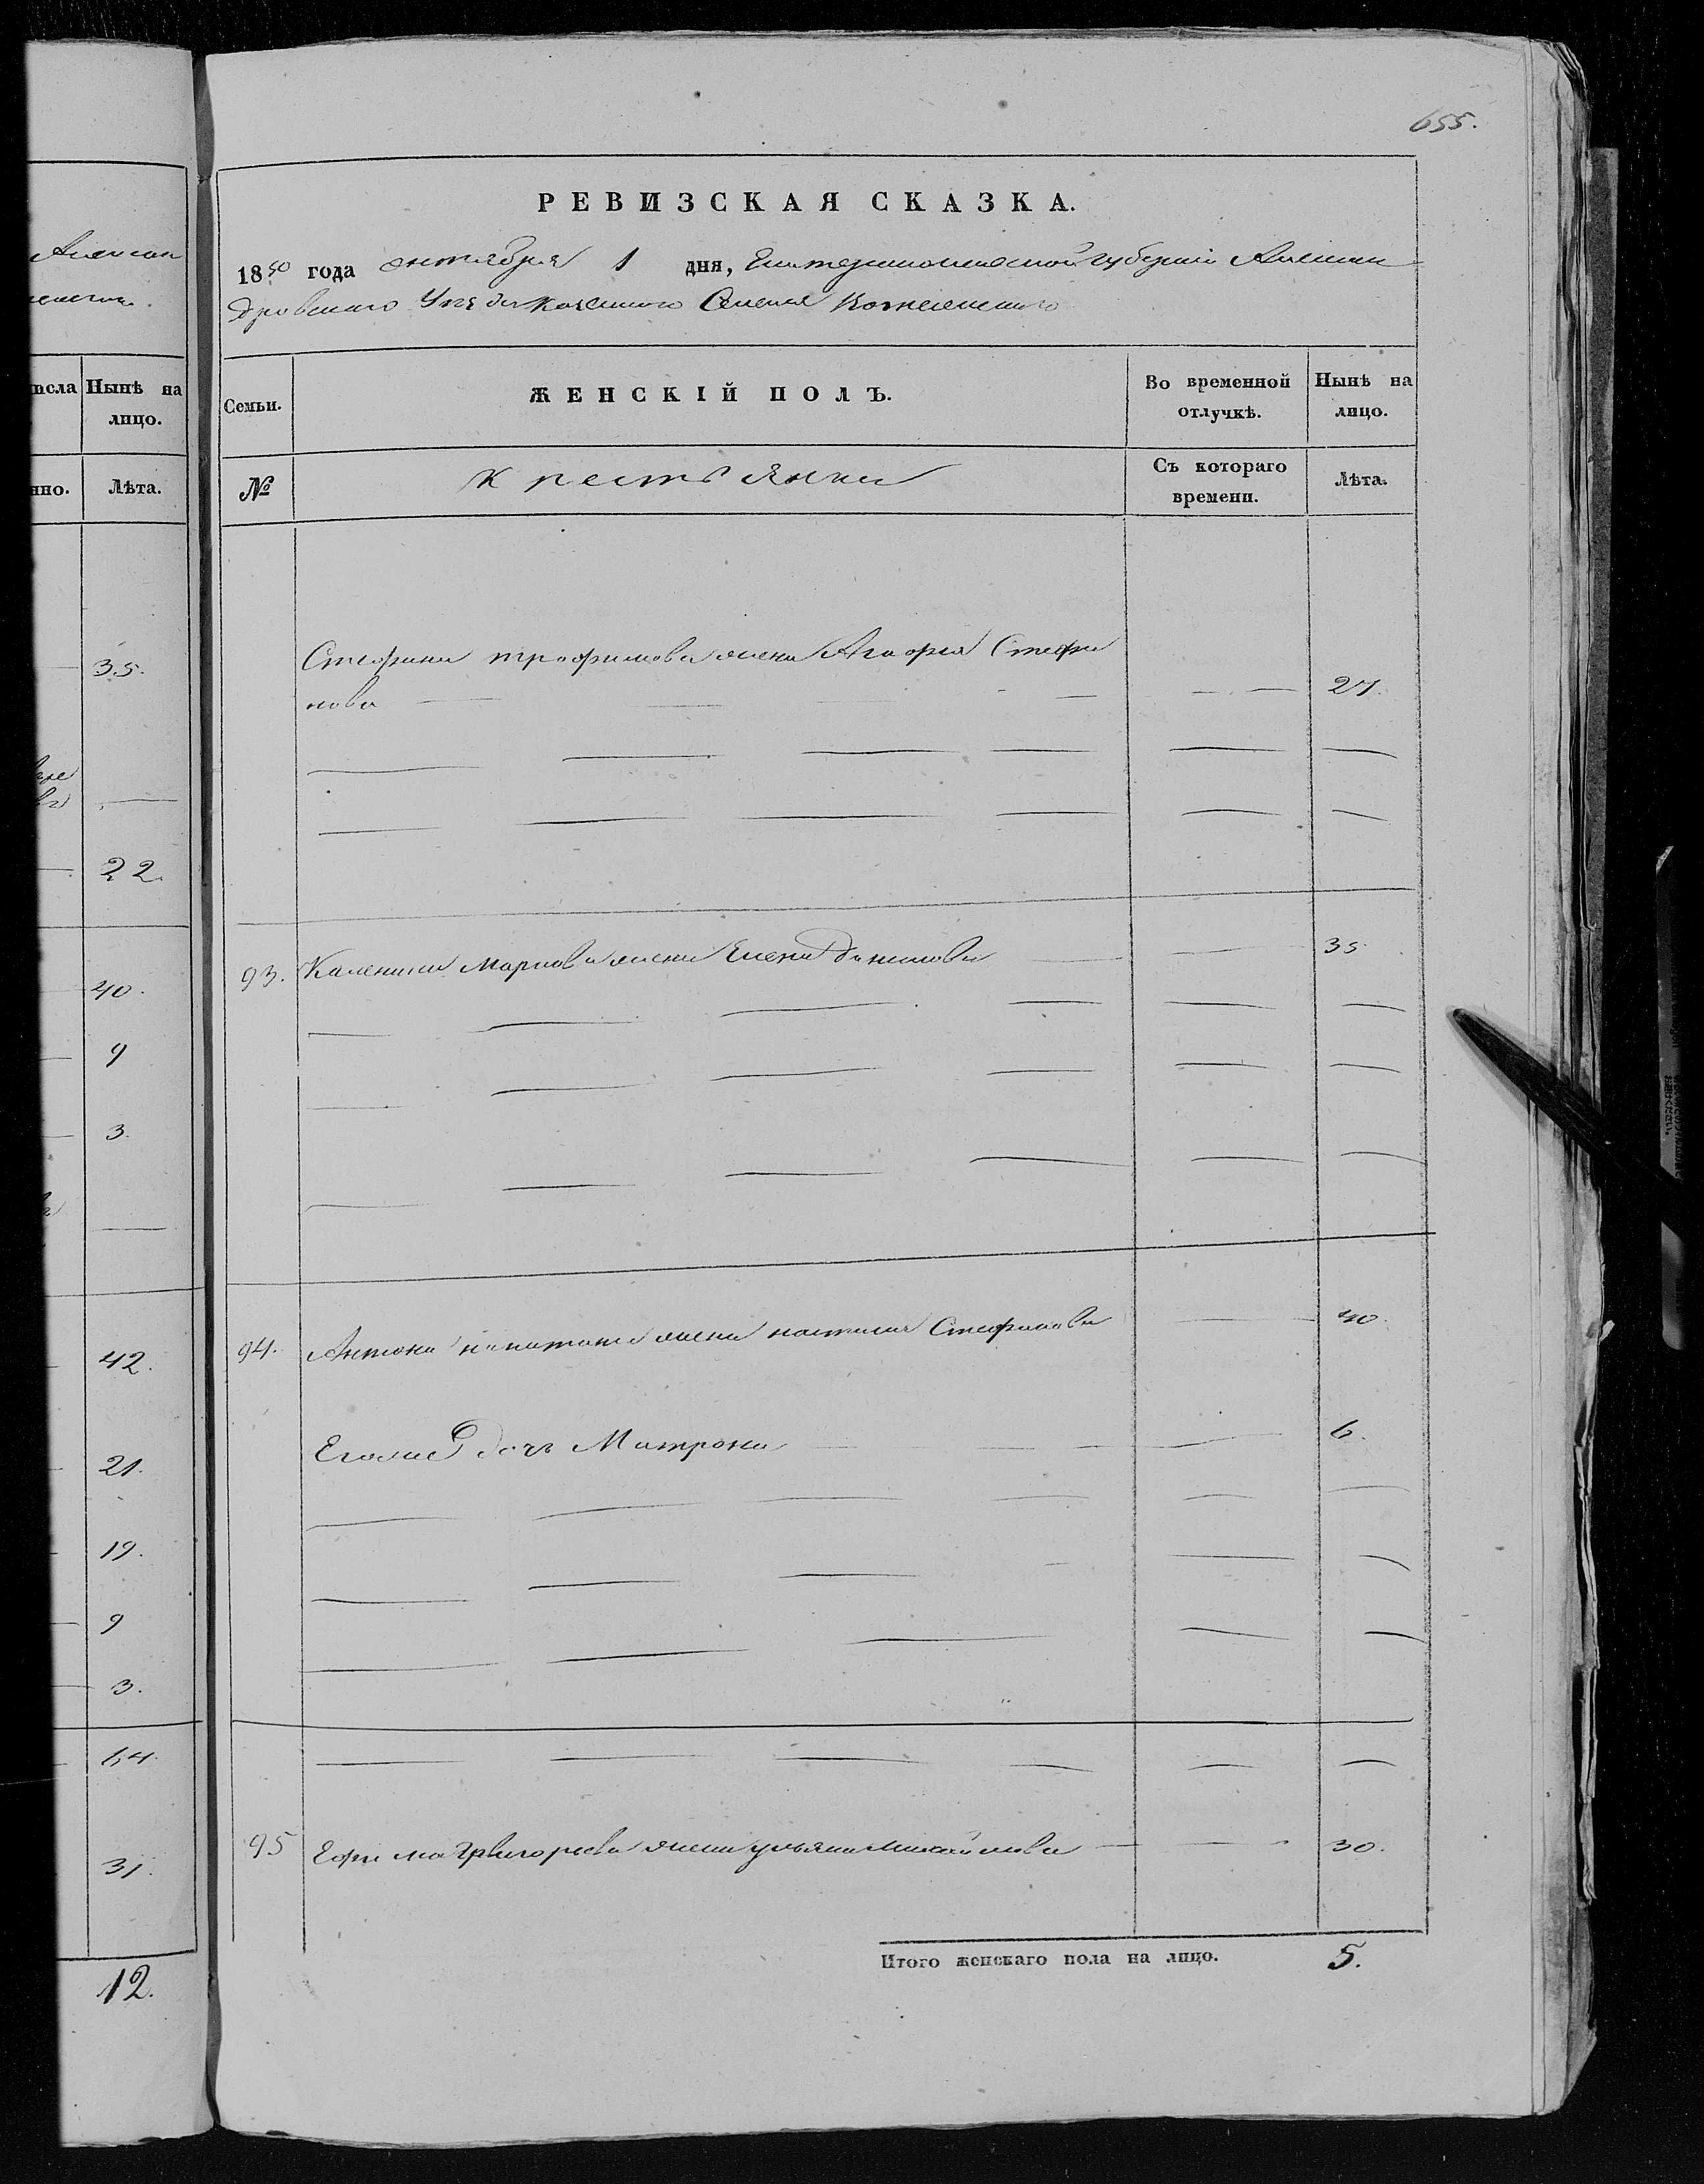 655.
РЕВИЗСКАЯ СКАЗКА.
1850 года октября 1 дня, Екатеринославской губернии Алексан
дровского Уезда казенного Селения Вознесенского
Семьи.
ЖЕНСКІЙ ПОЛЪ.
Во временной отлучкѣ.
Нынѣ на лицо.
№
Крестьянки
Съ котораго времени.
Лѣта.
Стефана трофимова жена Агафия Стефа
нова 27.
93. Каленика Маркова жена Елена Данилова 35
94. Антона жена Стефанова 40.
Его же дочь Матрона 6.
95 Ефима Григорьева жена ульяна михайлова 30.
Итого женскаго пола на лицо. 5.
Алексан
исла
Нынѣ на
лицо.
нно.
Лѣта.
35.
22.
40.
9
3.
42.
21.
19.
9
3.
64.
31.
12.